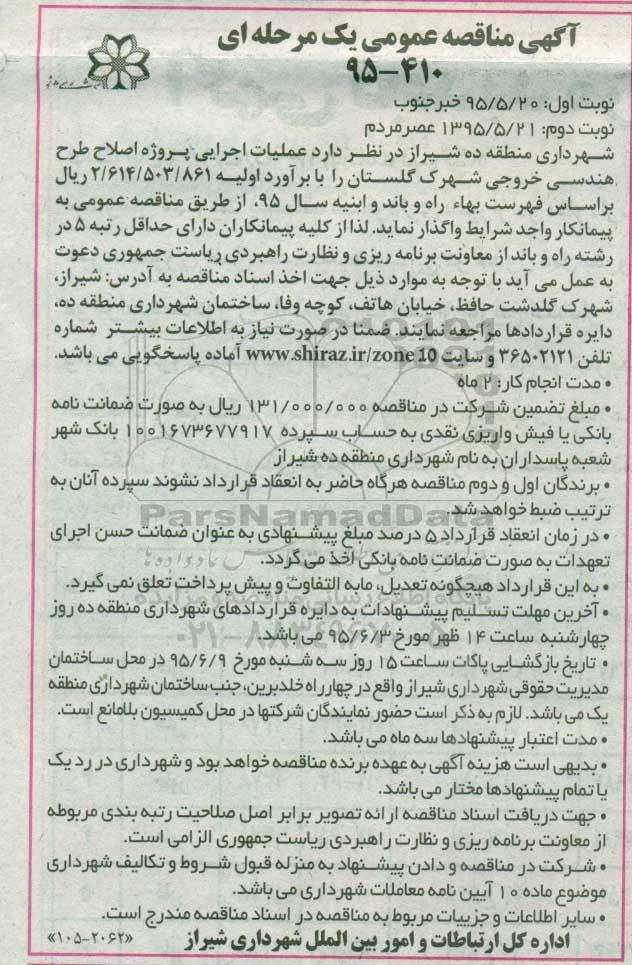 آگهی مناقصه عمومی یک مرحله ای
۹۵-۴۱۰
نوبت اول: ۹۵/۵/۲۰ خبرجنوب
نوبت دوم: ۱۳۹۵/۵/۲۱ عصرمردم
شهرداری منطقه ده شیراز در نظر دارد عملیات اجرایی پروژه اصلاح طرح
هندسی خروجی شهرک گلستان را با برآورد اولیه ۲/۶۱۴/۵۰۳/۸۶۱ ریال
براساس فهرست بهاء راه و باند و ابنیه سال ۹۵، از طریق مناقصه عمومی به
پیمانکار واجد شرایط واگذار نماید. لذا از کلیه پیمانکاران دارای حداقل رتبه ۵ در
رشته راه و باند از معاونت برنامه ریزی و نظارت راهبردی ریاست جمهوری دعوت
به عمل می آید با توجه به موارد ذیل جهت اخذ اسناد مناقصه به آدرس: شیراز،
شهرک گلدشت حافظ، خیابان هاتف، کوچه وفا، ساختمان شهرداری منطقه ده،
دایره قراردادها مراجعه نمایند. ضمنا در صورت نیاز به اطلاعات بیشتر شماره
تلفن ۳۶۵۰۲۱۲۱ و سایت www.shiraz.ir/zone 10 آماده پاسخگویی می باشد.
• مدت انجام کار: ۲ ماه
• مبلغ تضمین شرکت در مناقصه ۱۳۱/۰۰۰/۰۰۰ ریال به صورت ضمانت نامه
بانکی یا فیش واریزی نقدی به حساب سپرده ۱۰۰۱۶۷۳۶۷۷۹۱۷ بانک شهر
شعبه پاسداران به نام شهرداری منطقه ده شیراز
• برندگان اول و دوم مناقصه هرگاه حاضر به انعقاد قرارداد نشوند سپرده آنان به
ترتیب ضبط خواهد شد.
• در زمان انعقاد قرارداد ۵ درصد مبلغ پیشنهادی به عنوان ضمانت حسن اجرای
تعهدات به صورت ضمانت نامه بانکی اخذ می گردد.
• به این قرارداد هیچگونه تعدیل، مابه التفاوت و پیش پرداخت تعلق نمی گیرد.
• آخرین مهلت تسلیم پیشنهادات به دایره قراردادهای شهرداری منطقه ده روز
چهارشنبه ساعت ۱۴ ظهر مورخ ۹۵/۶/۳ می باشد.
• تاریخ بازگشایی پاکات ساعت ۱۵ روز سه شنبه مورخ ۹۵/۶/۹ در محل ساختمان
مدیریت حقوقی شهرداری شیراز واقع در چهارراه خلدبرین، جنب ساختمان شهرداری منطقه
یک می باشد. لازم به ذکر است حضور نمایندگان شرکتها در محل کمیسیون بلامانع است.
• مدت اعتبار پیشنهادها سه ماه می باشد.
• بدیهی است هزینه آگهی به عهده برنده مناقصه خواهد بود و شهرداری در رد یک
یا تمام پیشنهادها مختار می باشد.
• جهت دریافت اسناد مناقصه ارائه تصویر برابر اصل صلاحیت رتبه بندی مربوطه
از معاونت برنامه ریزی و نظارت راهبردی ریاست جمهوری الزامی است.
• شرکت در مناقصه و دادن پیشنهاد به منزله قبول شروط و تکالیف شهرداری
موضوع ماده ۱۰ آیین نامه معاملات شهرداری می باشد.
• سایر اطلاعات و جزییات مربوط به مناقصه در اسناد مناقصه مندرج است.
اداره کل ارتباطات و امور بین الملل شهرداری شیراز «۱۰۵-۲۰۶۲»
ParsNamadData